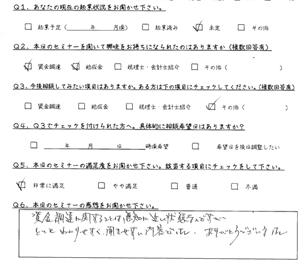 Q1. あなたの現在の起業状況をお聞かせ下さい。
□ 起業予定( 年 月頃) □ 起業済み ☑ 未定 □ その他
Q2. 本日のセミナーを聞いて興味をお持ちになられたのはありますか(複数回答有)
☑ 資金調達 ☑ 助成金 □ 税理士・会計士紹介 □ その他( )
Q3. 今後相談してみたい項目はありますか。ある方は下の項目にチェックしてください。(複数回答有)
☑ 資金調達 □ 助成金 □ 税理士・会計士紹介 ☑ その他( )
Q4. Q3でチェックを付けられた方へ。具体的に相談希望日はありますか?
□ 年 月 日 時頃希望 □ 希望日を後日調整したい
Q5. 本日のセミナーの満足度をお聞かせ下さい。該当する項目にチェックをして下さい。
☑ 非常に満足 □ やや満足 □ 普通 □ 不満
Q6. 本日のセミナーの感想をお聞かせ下さい。
資金調達に関することは
とてもわかりやすく、 ありがとうございました